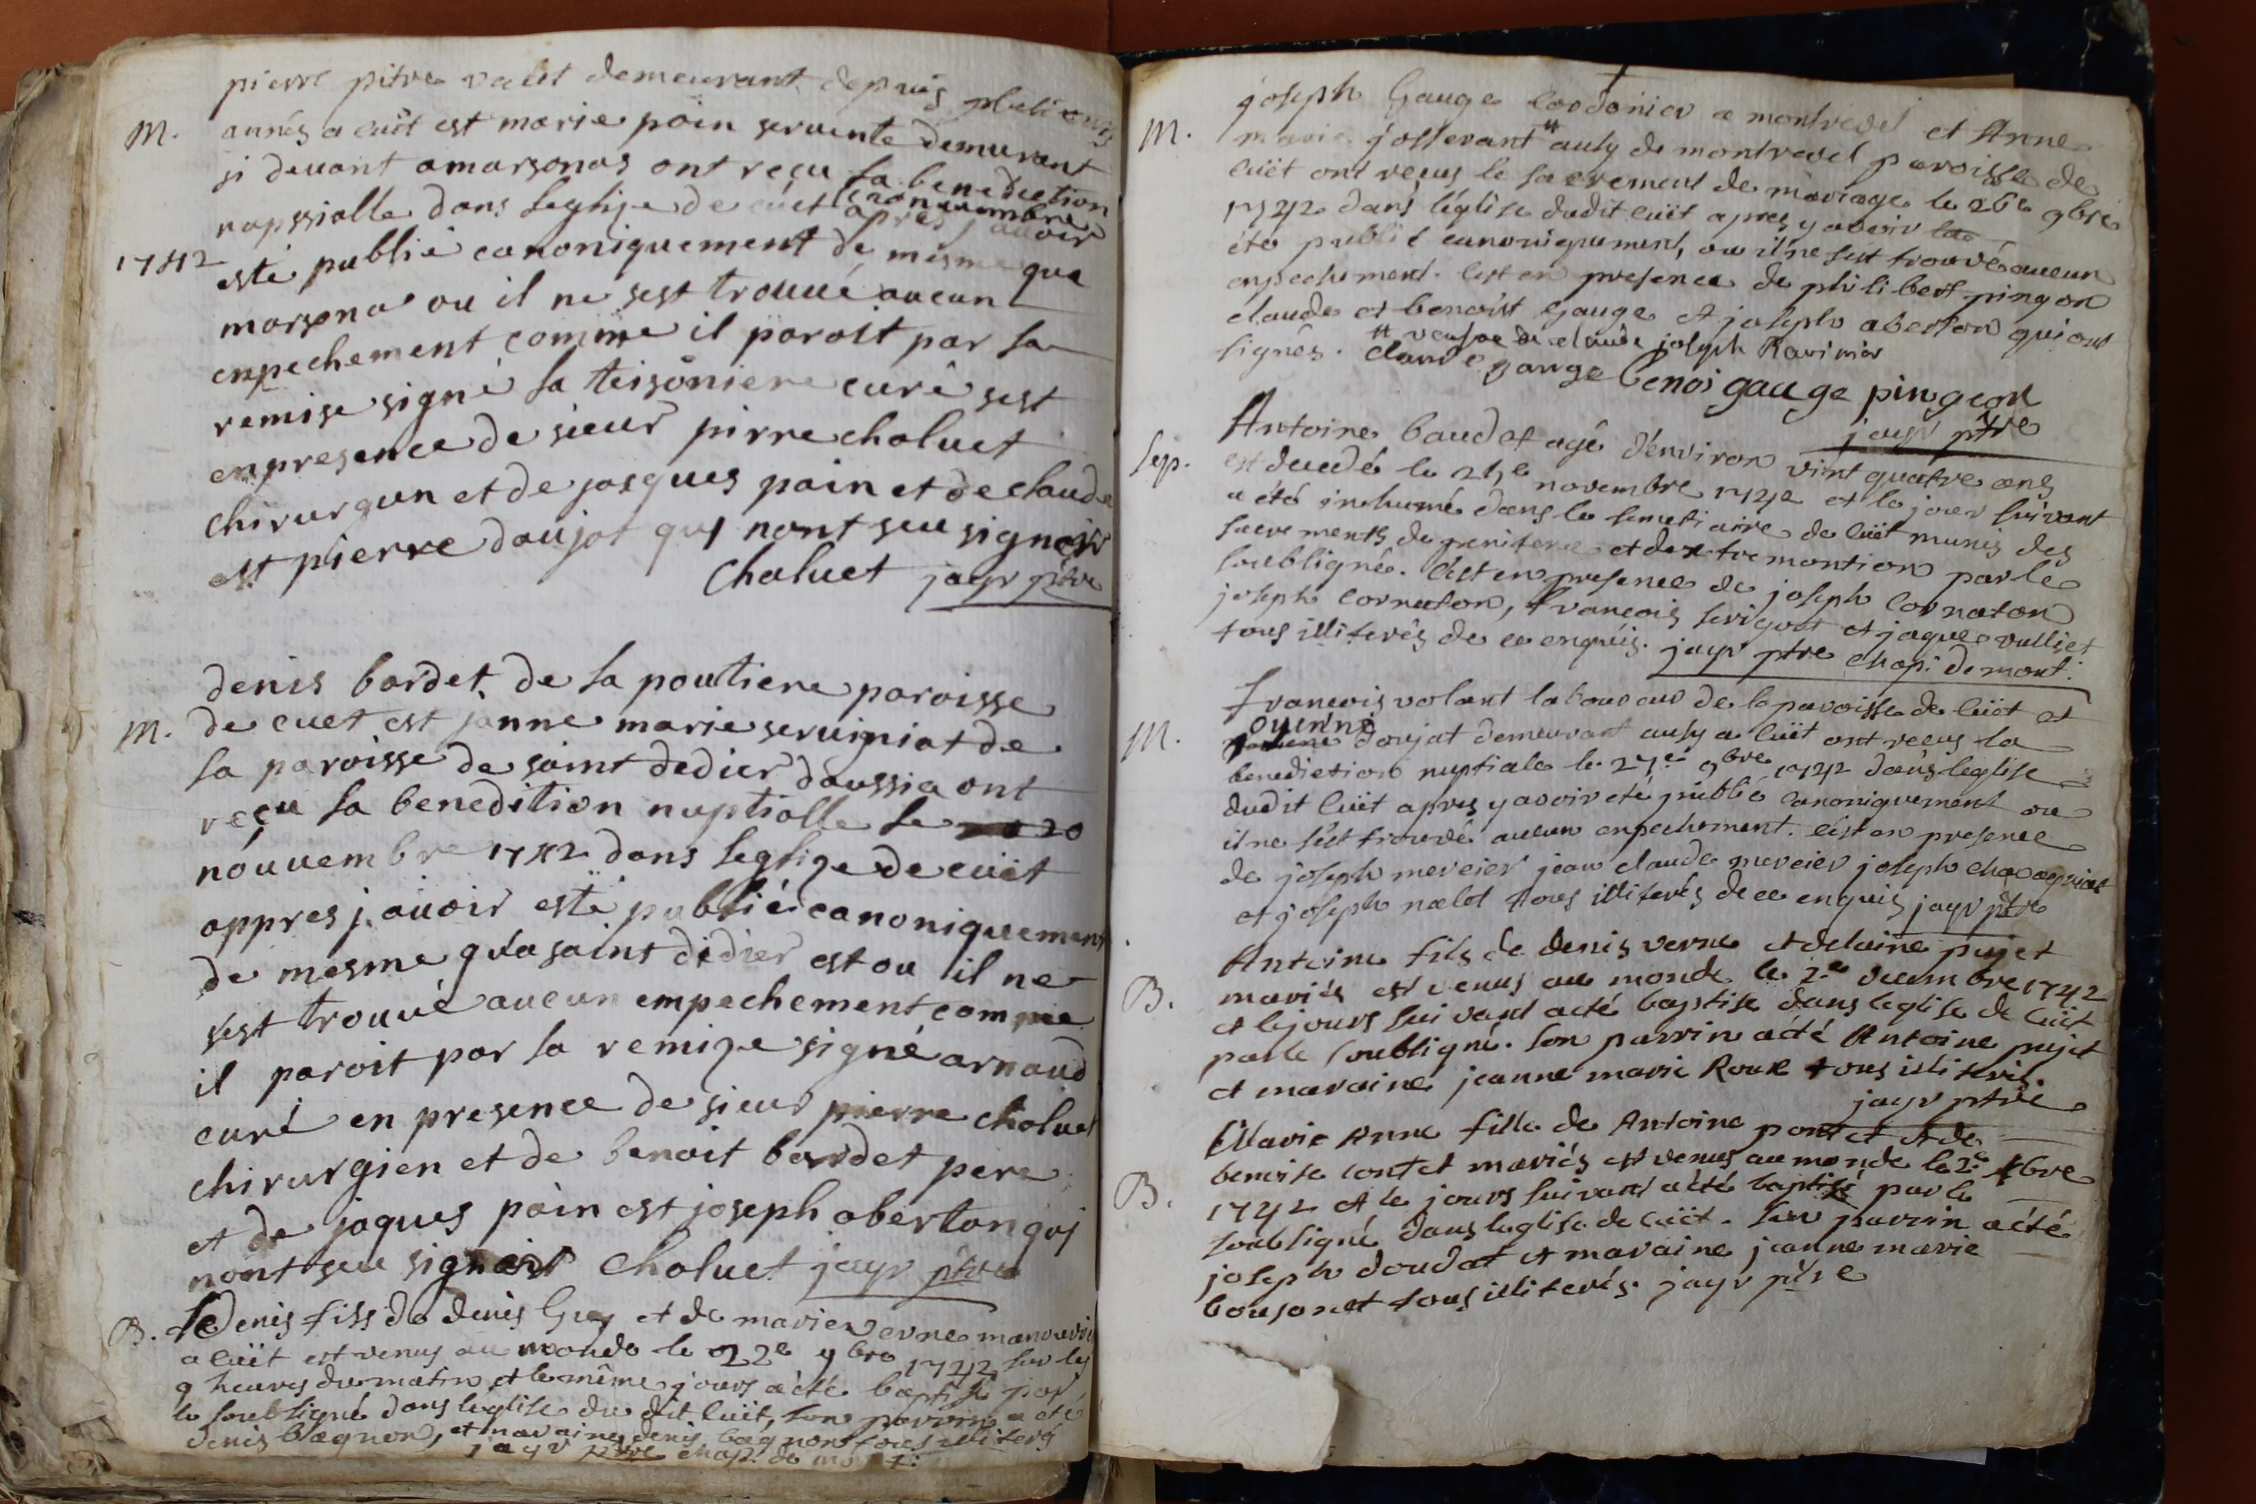 pierre pitre valet demeurant depuis plusieurs
M. annés a cuët est marie pöin servente demurant
si devant amarsonas ont reçu la benediction
nupssialle dans leglize de cuet le 20 nouvembre apres j auoir
1742 esté publié canoniquement de mesme que
marsona ou il ne sest trouué aucun
enpechement comme il paroit par la
remise signé la teisöniere curé sest
en presence de sieur pirre choluet
chirurgun et de jasques pain et de claude
est pierre daujat quj nont seu signer
choluet jayr ptre
denis bardet de la poutiere paroisse
M. de cuet est janne marie seruigniat de
la paroisse de saint dedier daussia ont
reçu la benedition nuptialle le 20
nouuembre 1742 dans leglize de cuët
appres j auoir esté publié canoniquement
de mesme qua saint didier est ou il ne
sest trouué aucun empechement comme
il paroit par la remize signé arnaud
curé en presence de sieur pierre choluet
chirurgien et de benoit bardet pere
et de jaques pain est joseph aberton qui
nont seu signer Choluet jayr ptre
B. Denis fils de denis Guy et de marie verne manouvrier
a cuët est venus au monde le 22e 9bre 1742 sur les
9 heures du matin et le même jours a été baptisé par
le soubsigné dans léglise du dit cuët, son parrin a été
denis bægnon, et maraine denis bægnon tous illiterés
jayr ptre chap. de mont:
joseph Gauge cordonier a montrevel et Anne
M. marie josserant # ausy de montrevel paroisse de
cuët ont reçus le sacrement de mariage le 26e 9bre
1742 dans l'église dudit cuët apres y avoir
été publié canoniquement, ou il ne s'est trouvé aucun
enpechement. C'est en presence de philibert pingeon
claude et benoist Gauge et joseph aberton qui ont
signés. # veufve de claude joseph Ravinier
claude gauge benoi gauge pingeon
jayr ptre
Antoine baudot agé d'environ vint quatre ans
Sep. est decedé le 24e novembre 1742 et le jour suivant
a été inhumé dans le semetiaire de cuët munis des
sacrements de penitence et dextremontion par le
soubsigné. C'est en presence de joseph cornaton
joseph cornaton, francois serigoat et jaques vulliet
tous illiterés de ce enquis. jayr ptre chap: de mont:
francois volant laboureur de la paroisse de cuët et
M. oyenne doujat demeurant ausy a cuët ont reçus la
benediction nuptiale le 27e 9bre 1742 dans leglise
dudit cuët apres y avoir été publié canoniquement ou
il ne s'est trouvé aucun enpechement. c'est en presence
de joseph mercier jean claude mercier joseph
et joseph nælet tous illiterés de ce enquis jayr ptre
Antoine fils de denis verne et de laine pujet
B. mariés est venus au monde le 2e decembre 1742
et le jours suivant a été baptise dans leglise de cuët
par le soubsigné. son parrin a été Antoine pujet
et maraine jeanne marie Roux tous illiterés.
jayr ptre
Marie Anne fille de Antoine pontet et de
B. benoise contet mariés est venus au monde le 2e xbre
1742 et le jours suivant a été baptisé par le
soubsigné dans leglise de cuët. son parrin a été
joseph doudat et maraine jeanne marie
bousonet tous illiterés. jayr ptre